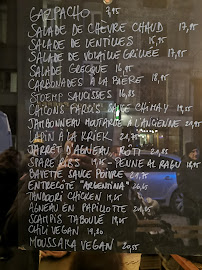 GAZPACHO 7,95
SALADE DE CHÈVRE CHAUD 17,95
SALADE DE LENTILLES 15,95
SALADE DE VOLAILLE GRILLÉE 17,95
SALADE GRECQUE 16,95
CARBONADES À LA BIÈRE 18,95
STOEMP SAUCISSES 16,85
CHICONS FARCIS SAUCE CHIMAY 19,95
JAMBONNEAU MOUTARDE À L'ANCIENNE
LAPIN À LA KRIEK 21,95
JARRET D'AGNEAU RÔTI
SPARE RIBS PENNE AL RAGU
BAVETTE SAUCE POIVRE
ENTRECÔTE "ARGENTINA"
TANDOORI CHICKEN
AGNEAU EN PAPILLOTTE
SCAMPIS TABOULÉ
CHILI VEGAN
MOUSSAKA VEGAN